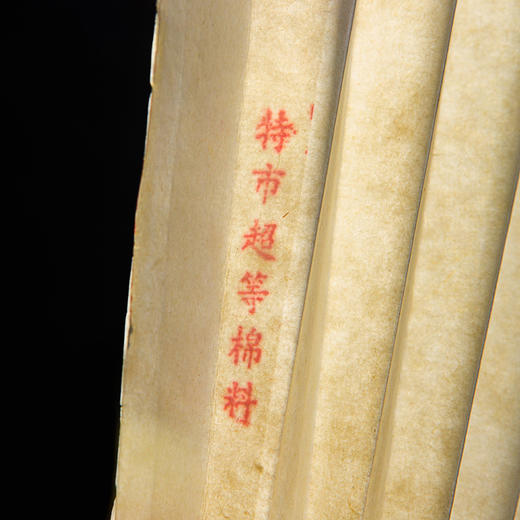 特市超等棉料